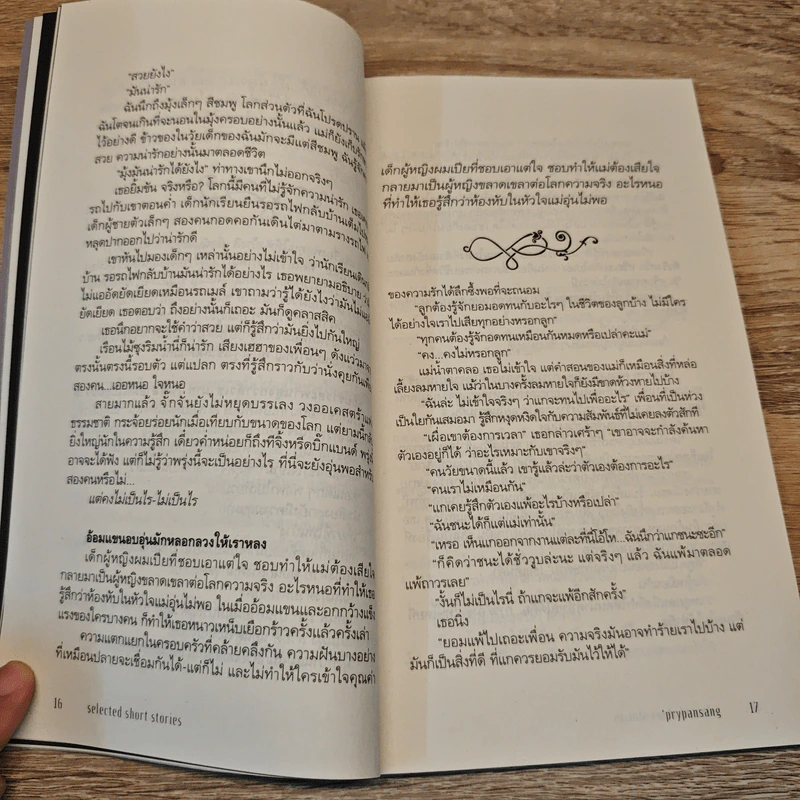 "สวยยังไง"
"มันน่ารัก"
ฉันนึกถึงมุ้งเล็กๆ สีชมพู โลกส่วนตัวที่ฉันโปรดปราน
ฉันโตจนเกินที่จะนอนในมุ้งครอบอย่างนั้นแล้ว แม่ก็ยังเก็บ
ไว้อย่างดี ข้าวของในวัยเด็กของฉันมักจะมีแต่สีชมพู ฉันรู้จัก
สวย ความน่ารักอย่างนั้นมาตลอดชีวิต
"มุ้งมันน่ารักได้ยังไง" ท่าทางเขานึกไม่ออกจริงๆ
เธอยิ้มขัน จริงหรือ? โลกนี้มีคนที่ไม่รู้จักความน่ารัก เธอ
รถไปกับเขาตอนค่ำ เด็กนักเรียนยืนรอรถไฟกลับบ้านเต็ม
เด็กผู้ชายตัวเล็กๆ สองคนกอดคอกันเดินไต่มาตามรางรถไฟ
หลุดปากออกไปว่าน่ารักดี
เขาหันไปมองเด็กๆ เหล่านั้นอย่างไม่เข้าใจ ว่านักเรียนเดิน
บ้าน รอรถไฟกลับบ้านมันน่ารักได้อย่างไร เธอพยายามอธิบาย
ไม่แออัดยัดเยียดเหมือนรถเมล์ เขาถามว่ารู้ได้ยังไงว่ามันไม่
ยัดเยียด เธอตอบว่า ถึงอย่างนั้นก็เถอะ มันก็ดูคลาสสิค
เธอนึกอยากจะใช้คำว่าสวย แต่ก็รู้สึกว่ามันยิ่งไปกันใหญ่
เรือนไม้ซุงริมน้ำนี่ก็น่ารัก เสียงเฮฮาของเพื่อนๆ ดังแว่วมา
ตรงนั้นตรงนี้รอบตัว แต่แปลก ตรงที่รู้สึกราวกับว่านั่งคุยกันเพียง
สองคน...เออหนอ ใจหนอ
สายมากแล้ว จั๊กจั่นยังไม่หยุดบรรเลง วงออเคสตร้าแห่ง
ธรรมชาติ กระจ้อยร่อยนักเมื่อเทียบกับขนาดของโลก แต่ยามนี้กลับ
ยิ่งใหญ่นักในความรู้สึก เดี่ยวค่ำหน่อยก็ถึงทีจิ้งหรีดบิ๊กแบนด์ พรุ่งนี้
อาจจะได้ฟัง แต่ก็ไม่รู้ว่าพรุ่งนี้จะเป็นอย่างไร ที่นี่จะยังอุ่นพอสำหรับ
สองคนหรือไม่...
แต่คงไม่เป็นไร-ไม่เป็นไร
อ้อมแขนอบอุ่นมักหลอกลวงให้เราหลง
เด็กผู้หญิงผมเปียที่ชอบเอาแต่ใจ ชอบทำให้แม่ต้องเสียใจ
กลายมาเป็นผู้หญิงขลาดเขลาต่อโลกความจริง อะไรหนอที่ทำให้เธอ
รู้สึกว่าห้องหับในหัวใจแม่อุ่นไม่พอ ในเมื่ออ้อมแขนและอกกว้างแข็ง
แรงของใครบางคน ก็ทำให้เธอหนาวเหน็บเยือกร้าวครั้งแล้วครั้งเล่า
ความแตกแยกในครอบครัวที่คล้ายคลึงกัน ความฝันบางอย่าง
ที่เหมือนปลายจะเชื่อมกันได้-แต่ก็ไม่ และไม่ทำให้ใครเข้าใจคุณค่า
16 selected short stories
เด็กผู้หญิงผมเปียที่ชอบเอาแต่ใจ ชอบทำให้แม่ต้องเสียใจ
กลายมาเป็นผู้หญิงขลาดเขลาต่อโลกความจริง อะไรหนอ
ที่ทำให้เธอรู้สึกว่าห้องหับในหัวใจแม่อุ่นไม่พอ
ของความรักได้ลึกซึ้งพอที่จะถนอม
"ลูกต้องรู้จักยอมอดทนกับอะไรๆ ในชีวิตของลูกบ้าง ไม่มีใคร
ได้อย่างใจเราไปเสียทุกอย่างหรอกลูก"
"ทุกคนต้องรู้จักอดทนเหมือนกันหมดหรือเปล่าคะแม่"
"คง...คงไม่หรอกลูก"
แม่น้ำตาคลอ เธอไม่เข้าใจ แต่คำสอนของแม่ก็เหมือนสิ่งที่หล่อ
เลี้ยงลมหายใจ แม้ว่าในบางครั้งลมหายใจก็ยังมีขาดห้วงหายไปบ้าง
"ฉันล่ะ ไม่เข้าใจจริงๆ ว่าแกจะทนไปเพื่ออะไร" เพื่อนที่เป็นห่วง
เป็นใยกันเสมอมา รู้สึกหงุดหงิดใจกับความสัมพันธ์ที่ไม่เคยลงตัวสักที
"เผื่อเขาต้องการเวลา" เธอกล่าวเศร้าๆ "เขาอาจจะกำลังค้นหา
ตัวเองอยู่ก็ได้ ว่าอะไรเหมาะกับเขาจริงๆ"
"คนวัยขนาดนี้แล้ว เขารู้แล้วล่ะว่าตัวเองต้องการอะไร"
"คนเราไม่เหมือนกัน"
"แกเคยรู้สึกตัวเองแพ้อะไรบ้างหรือเปล่า"
"ฉันชนะได้ก็แต่แม่เท่านั้น"
"เหรอ เห็นแกออกจากงานแต่ละที่นี่โอ้โห...ฉันนึกว่าแกชนะซะอีก"
"ก็คิดว่าชนะได้ชั่ววูบล่ะนะ แต่จริงๆ แล้ว ฉันแพ้มาตลอด
แพ้ถาวรเลย"
"งั้นก็ไม่เป็นไรนี่ ถ้าแกจะแพ้อีกสักครั้ง"
เธอนิ่ง
"ยอมแพ้ไปเถอะเพื่อน ความจริงมันอาจทำร้ายเราไปบ้าง แต่
มันก็เป็นสิ่งที่ดี ที่แกควรยอมรับมันไว้ให้ได้"
'prypansang 17